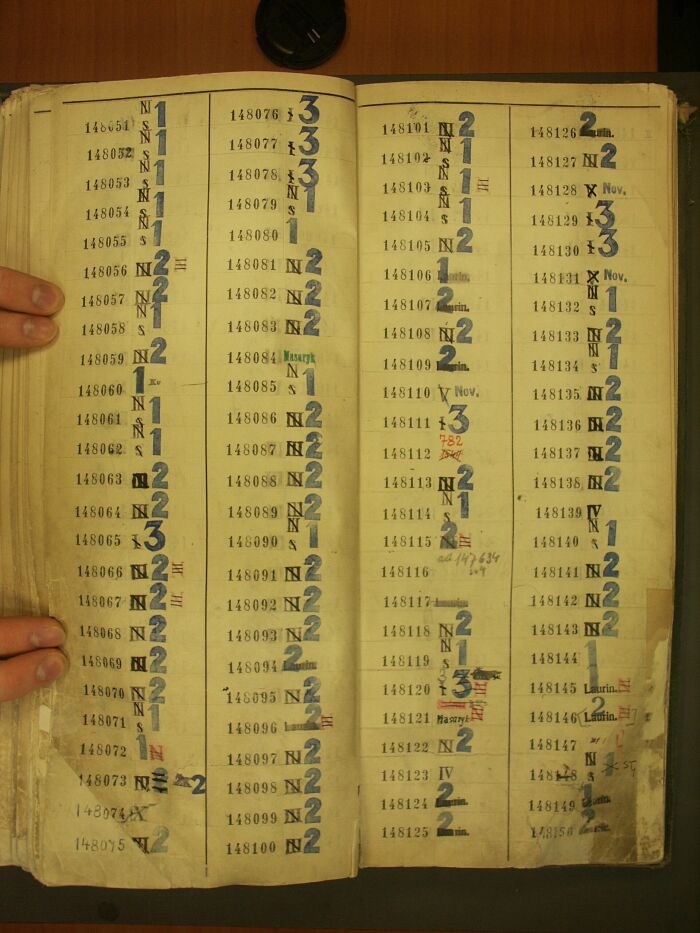 148051 N S 1
148052 N S 1
148053 N S 1
148054 N S 1
148055 N S 1
148056 N 2 III
148057 N 2
148058 N S 1
148059 N 2
148060 1
148061 N S 1
148062 N S 1
148063 N 2
148064 N 2
148065 3
148066 N 2 III.
148067 N 2 III.
148068 N 2
148069 N 2
148070 N 2
148071 N S 1
148072 1
148073 N 2
148074 X
148075 2
148076 3
148077 3
148078 3
148079 N S 1
148080 1
148081 N 2
148082 N 2
148083 N 2
148084 Masaryk
148085 N S 1
148086 N 2
148087 N 2
148088 N 2
148089 N 2
148090 N S 1
148091 N 2
148092 N 2
148093 N 2
148094 2 Laurin.
148095 N 2
148096 Laurin 2 III
148097 N 2
148098 N 2
148099 N 2
148100 N 2
148101 N 2
148102 N S 1
148103 N S 1 III
148104 N S 1
148105 N 2
148106 1 Laurin.
148107 2 Laurin.
148108 N 2
148109 2 Laurin.
148110 V Nov.
148111 3
148112 782
148113 N 2
148114 N S 1
148115 2 III
148116 147634
148117 Laurin
148118 N 2
148119 N S 1
148120 3 III
148121 Masaryk III
148122 N 2
148123 IV
148124 2 Laurin.
148125 2 Laurin.
148126 2 Laurin.
148127 N 2
148128 X Nov.
148129 3
148130 3
148131 X Nov.
148132 N S 1
148133 N 2
148134 N S 1
148135 N 2
148136 N 2
148137 N 2
148138 N 2
148139 IV
148140 N S 1
148141 N 2
148142 N 2
148143 N 2
148144 1
148145 Laurin. III
148146 2 Laurin. III
148147
148148 N S
148149 1 Laurin
148150 2 Laurin.